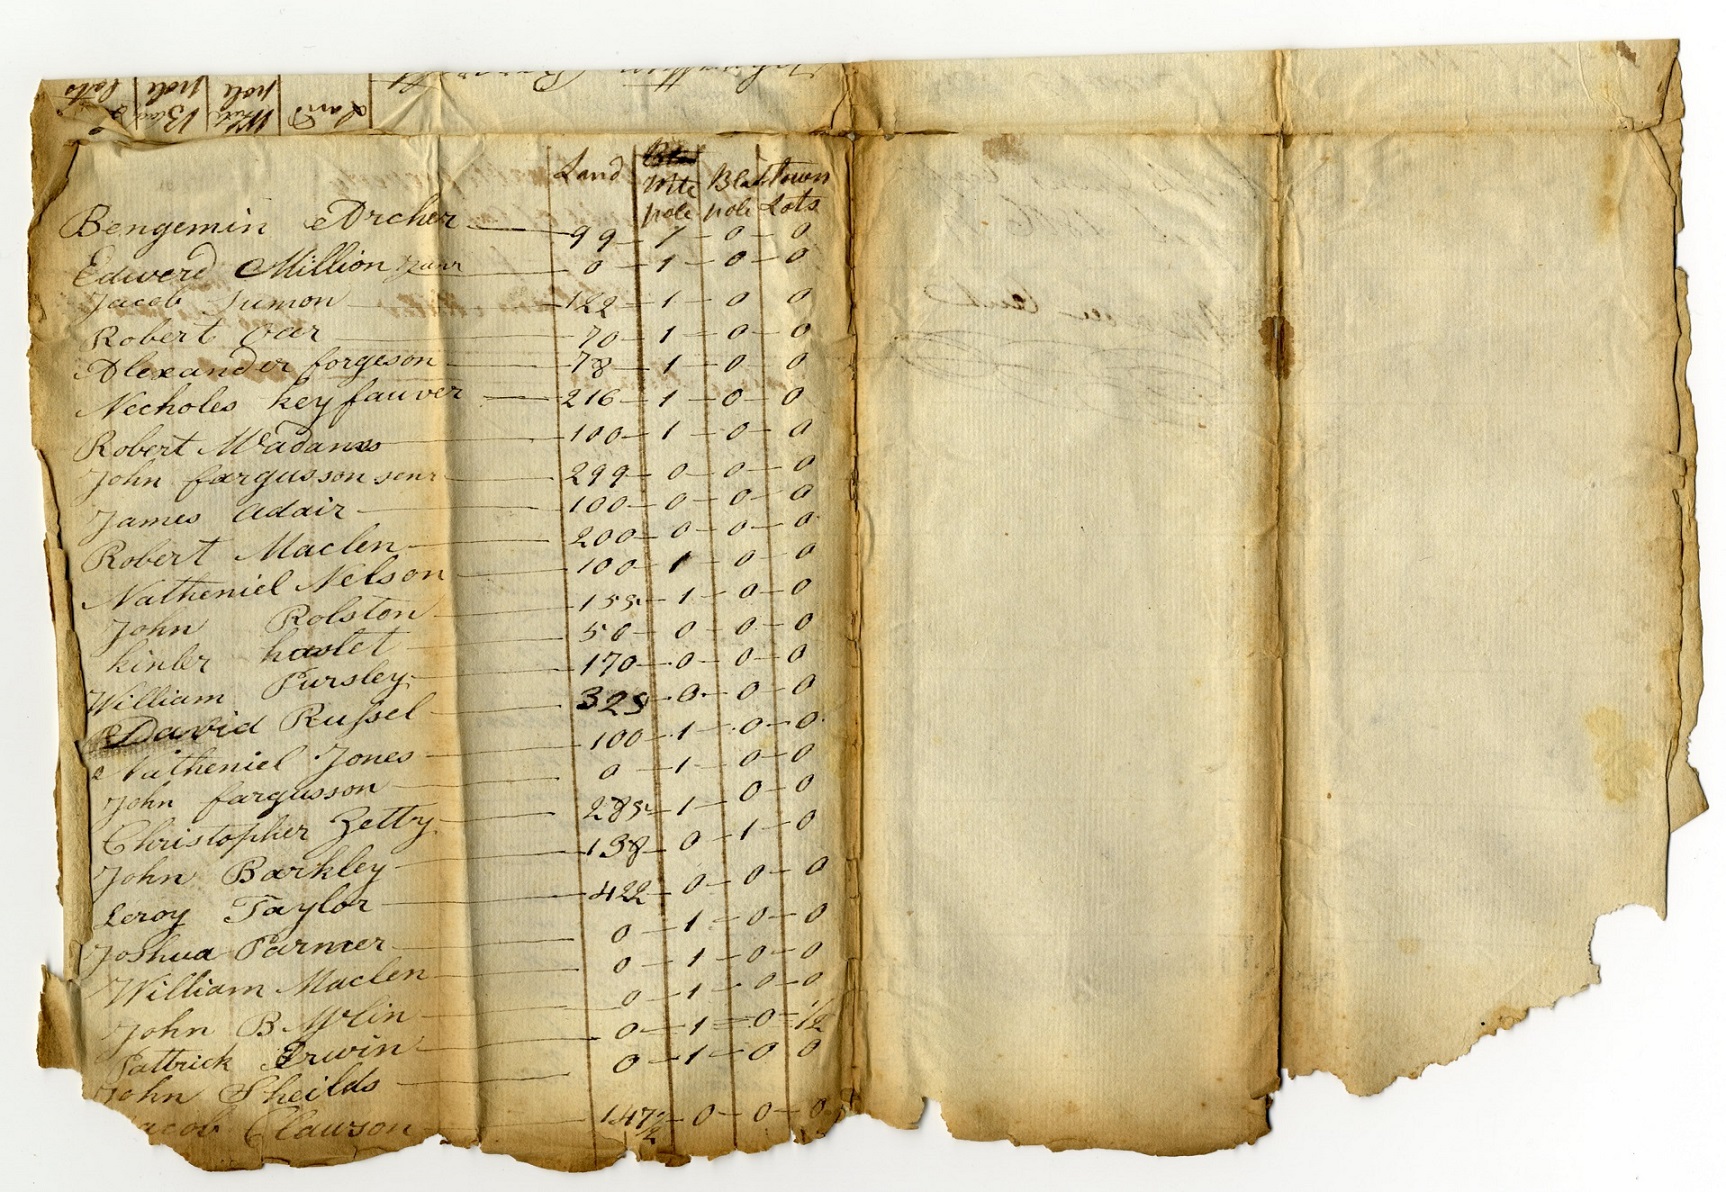 Land Wht Blac
pole pole Lots
Land Wte Blac Town
pole pole Lots
Bengemin Archer — 99 — 1 — 0 — 0
Edwerd Million Junr — 0 — 1 — 0 — 0
Jacob — 122 — 1 — 0 0
Robert Oar — 70 — 1 — 0 — 0
Alexander forgeson — 78 — 1 — 0 0
Necholes keyfauver — 216 — 1 — 0 — 0
Robert Mcadams — 100 — 1 — 0 — 0
John fargusson senr — 299 — 0 — 0 — 0
James Adair — 100 — 0 — 0 — 0
Robert Maclen — 200 — 0 — 0 — 0
Natheniel Nelson — 100 — 1 — 0 — 0
John Rolston — 155 — 1 — 0 — 0
kinler haslet — 50 — 0 — 0 — 0
William Pursley — 170 — 0 — 0 — 0
David Russel — 325 — 0 — 0 — 0
Natheniel Jones — 100 — 1 — 0 — 0
John fargusson — 0 — 1 — 0 — 0
Christopher Zetty — 285 — 1 — 0 — 0
John Barkley — 138 — 0 — 1 — 0
Leroy Taylor — 422 — 0 — 0 — 0
Joshua Parmer — 0 — 1 — 0 — 0
William Maclen — 0 — 1 — 0 — 0
John B Mclin — 0 — 1 — 0 — 0
Pattrick Erwin — 0 — 1 — 0 — 1/2
John Sheilds — 0 — 1 — 0 0
acob Clawson — 147 1/2 — 0 — 0 — 0